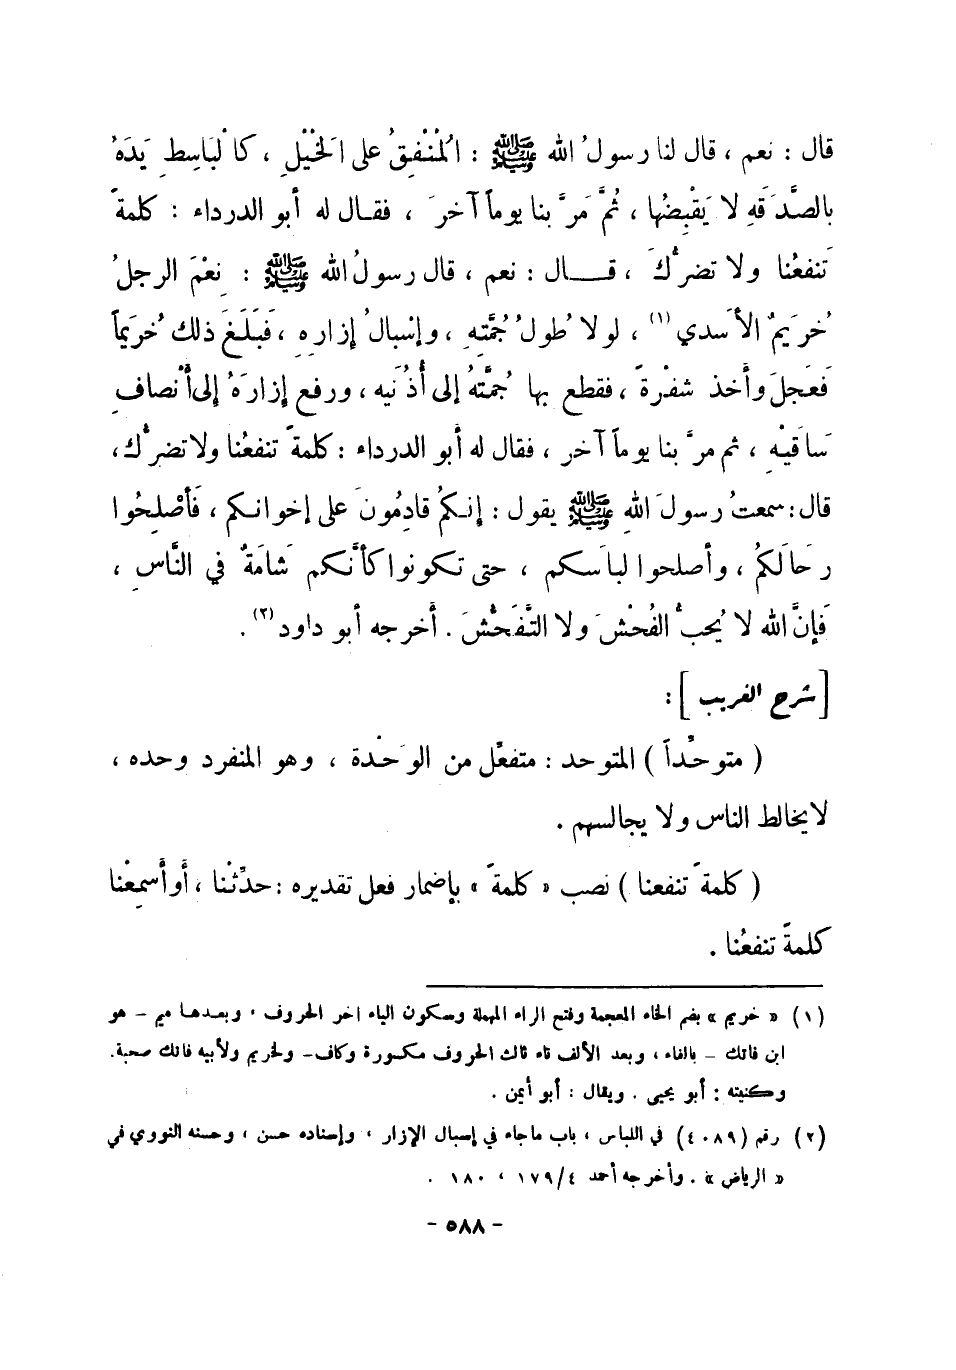 قال : نعم ، قال لنا رسولُ الله ﷺ : المُنْفِقُ على الخَيْلِ ، كالْباسِطِ يَدَهُ
بالصَّدَقَهِ لا يَقْبِضُها ، ثُمَّ مَرَّ بنا يوماً آخرَ ، فقال له أبو الدرداء : كلمةً
تَنفعُنا ولا تضرُّكَ ، قال : نعم ، قال رسولُ الله ﷺ : نِعْمَ الرجلُ
خُرَيمٌ الأسدي (١) ، لولا طولُ جُمَّتِهِ ، وإسْبالُ إزارِهِ ، فَبَلَغَ ذلك خُرَيماً
فَعَجلَ وأخذ شفْرةً ، فقطع بها جُمَّتهُ إلى أُذُنَيه ، ورفع إزارَهُ إلى أنْصافِ
سَاقَيْهِ ، ثم مرَّ بنا يوماً آخر ، فقال له أبو الدرداء : كلمةً تنفعُنا ولا تضرُّك ،
قال : سمعتُ رسولَ اللهِ ﷺ يقول : إنكمُ قادِمُونَ على إخوانكم ، فَأصْلِحُوا
رِحَالَكُمُ ، وأصلحوا لبَاسَكم ، حتى تكونوا كأنَّكم شَامَةٌ في النَّاسِ ،
فَإنَّ الله لا يُحبُّ الفُحْشَ ولا التَّفَحُّشَ . أخرجه أبو داود (٢) .
[ شرح الغريب ] :
( متوحِّداً ) المتوحد : متفعِّل من الوَحْدة ، وهو المنفرد وحده ،
لا يخالط الناس ولا يجالسهم .
( كلمةً تنفعنا ) نصب « كلمةً » بإضمار فعل تقديره : حدِّثْنا ، أو أسمِعْنا
كلمةً تنفعُنا .
(١) « خريم » بضم الخاء المعجمة وفتح الراء المهملة وسكون الياء آخر الحروف ، وبعدها ميم – هو
ابن فاتك – بالفاء ، وبعد الألف تاء ثالث الحروف مكسورة وكاف– ولخريم ولأبيه فاتك صحبة.
وكنيته : أبو يحيى . ويقال : أبو أيمن .
(٢) رقم (٤٠٨٩) في اللباس ، باب ما جاء في إسبال الإزار ، وإسناده حسن ، وحسنه النووي في
« الرياض » . وأخرجه أحمد ١٧٩/٤ ، ١٨٠ .
- ٥٨٨ -